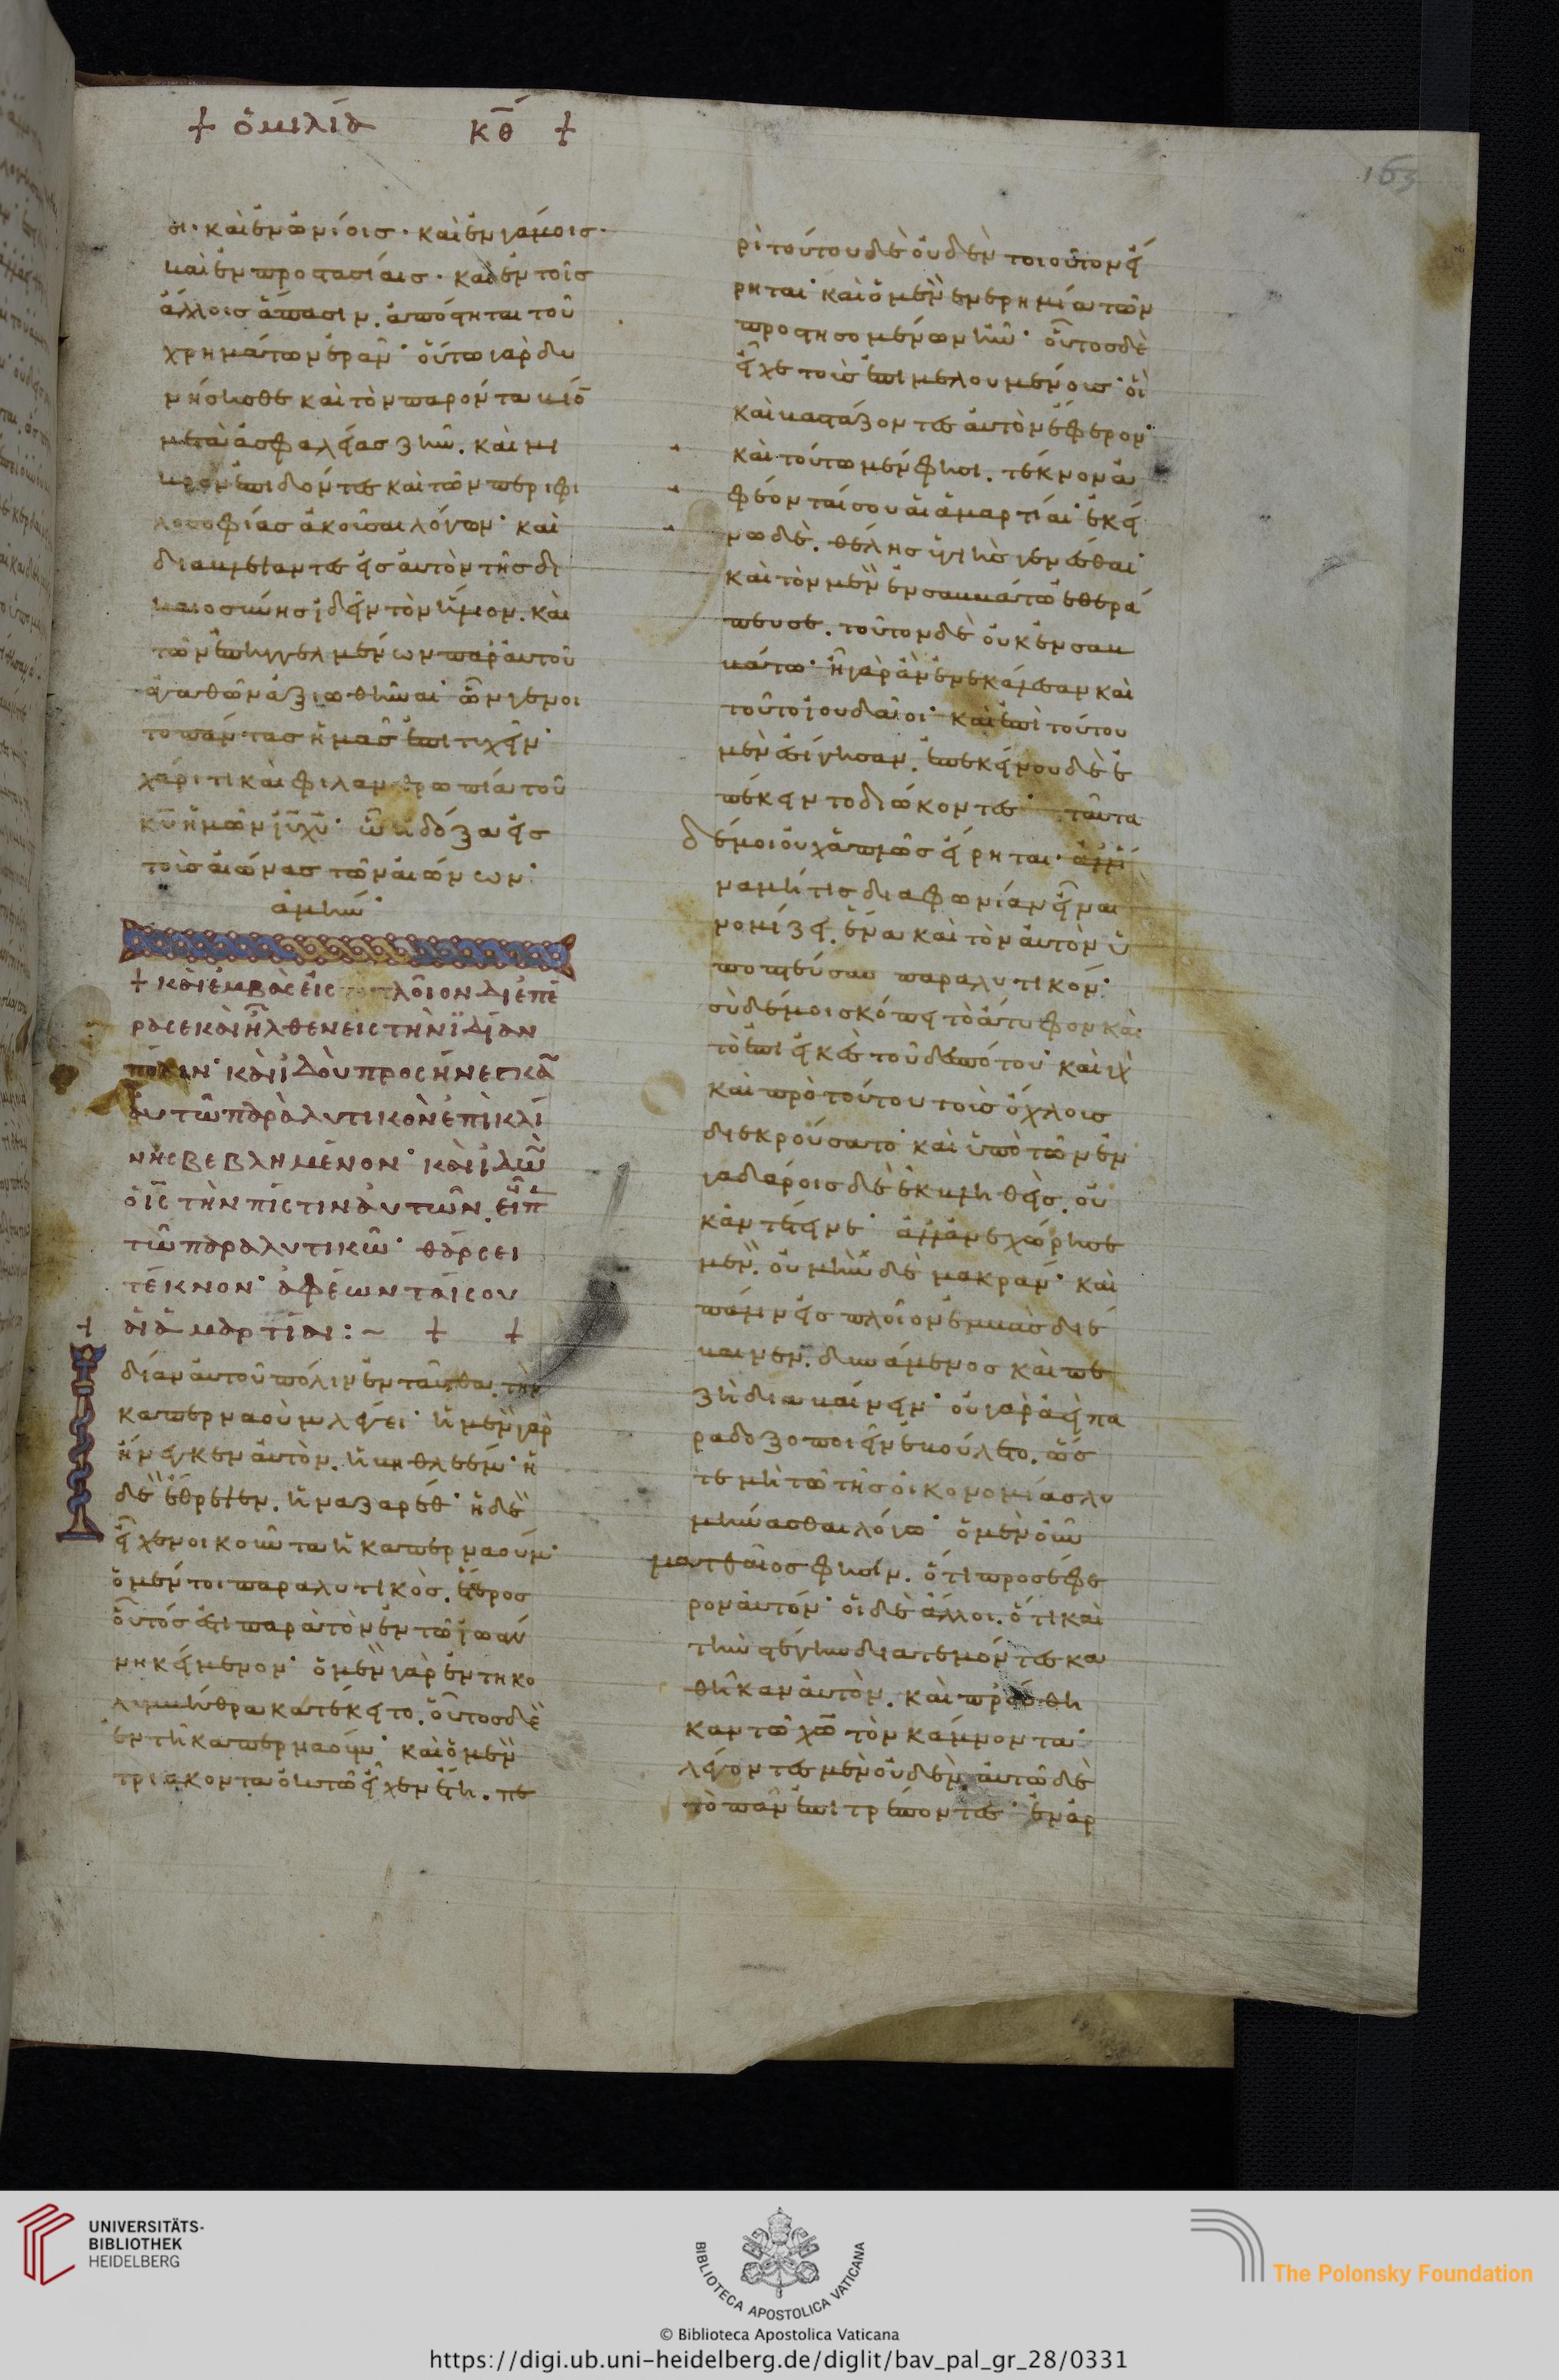 + ὁμιλία κθ +
163
σι· καὶ ἐν ὠνίοις· καὶ ἐν γάμοις·
καὶ ἐν προστασίαις· καὶ ἐν τοῖς
ἄλλοις ἅπασιν. ἀπόστηται τοῦ
χρημάτων ἐρᾶν· οὕτω γὰρ δυ
νήσεσθε καὶ τὸν παρόντα βίο
μετὰ ἀσφαλείας ζῆν. καὶ μι
κρὸν ἐπιδόντες καὶ τῶν περὶ φι
λοσοφίας ἀκοῦσαι λόγων· καὶ
διαβλέψαντες εἰς αὐτὸν τῆς δι
καιοσύνης ἰδεῖν τὸν ἥλιον. καὶ
τῶν ἐπηγγελμένων παρ' αὐτοῦ
ἀγαθῶν ἀξιωθῆναι· ὧν γένοι
το πάντας ἡμᾶς ἐπιτυχεῖν·
χάριτι καὶ φιλανθρωπία τοῦ
κυ ἡμῶν ιυ χυ· ὧ ἡ δόξα εἰς
τοὺς αἰῶνας τῶν αἰώνων·
ἀμήν·
+ καὶ ἐμβὰς εἰς τὸ πλοῖον διεπέ
ρασε καὶ ἦλθεν εἰς τὴν ἰδίαν
πόλιν· καὶ ἰδοὺ προσήνεγκαν
αὐτῶ παραλυτικὸν ἐπὶ κλί
νης βεβλημένον· καὶ ἰδὼν
ὁ ις τὴν πίστιν αὐτῶν. εἶπ
τῶ παραλυτικῶ· θάρσει
τέκνον· ἀφέωνταί σου
αἱ ἁμαρτίαι:~ + +
+
Ἰδίαν αὐτοῦ πόλιν ἐνταῦθα. τὴν
καπερναοὺμ λέγει· ἡ μὲν γὰρ
ἤνεγκεν αὐτὸν. ἡ βηθλεέμ· ἡ
δὲ ἔθρεψεν. ἡ ναζαρέθ· ἡ δὲ
εἶχεν οἰκοῦντα ἡ καπερναούμ·
ὁ μέντοι παραλυτικὸς. ἕτερος
οὗτός ἐστι παρὰ τὸν ἐν τῶ ἰωάν
νη κείμενον· ὁ μὲν γὰρ ἐν τῆ κο
λυμβήθρα κατέκειτο. οὗτος δὲ
ἐν τῆ καπερναούμ· καὶ ὁ μὲν
τριάκοντα ὀκτὼ εἶχεν ἔτη. πε
ρὶ τούτου δὲ οὐδὲν τοιοῦτον εἴ
ρηται· καὶ ὁ μὲν ἐν ἐρημία τῶν
προστησομένων ἦν· οὗτος δὲ
εἶχε τοὺς ἐπιμελουμένους· οἳ
καὶ βαστάζοντες αὐτὸν ἔφερον·
καὶ τούτω μέν φησι. τέκνον ἀ
φέονταί σου αἱ ἁμαρτίαι· ἐκεί
νω δὲ. θέλεις ὑγιὴς γενέσθαι·
καὶ τὸν μὲν ἐν σαββάτω ἐθερά
πευσε. τοῦτον δὲ οὐκ ἐν σαβ
βάτω· ἦ γὰρ ἂν ἐνεκάλεσαν καὶ
τοῦτο ἰουδαῖοι· καὶ ἐπὶ τούτου
μὲν ἐσίγησαν. ἐπ' ἐκείνου δὲ ἐ
πέκειντο διώκοντες· ταῦτα
δέ μοι οὐχ ἁπλῶς εἴρηται· ἀλλ' ἵ
να μή τις διαφωνίαν εἶναι
νομίζει. ἕνα καὶ τὸν αὐτὸν ὑ
ποπτεύσας παραλυτικόν·
σὺ δέ μοι σκόπει τὸ ἄτυφον καὶ
τὸ ἐπιεικὲς τοῦ δεσπότου· καὶ γὰρ
καὶ πρὸ τούτου τοὺς ὄχλους
διεκρούσατο· καὶ ὑπὸ τῶν ἐν
γαδάροις δὲ ἐκβληθεὶς. οὐ
κ ἀντέτεινε· ἀλλ' ἀνεχώρησε
μὲν. οὐ μὴν δὲ μακράν· καὶ
πάλιν εἰς πλοῖον ἐμβὰς διέ
βαινεν. δυνάμενος καὶ πε
ζῆ διαβαίνειν· οὐ γὰρ ἀεὶ πα
ραδοξοποιεῖν ἐβούλετο. ὥσ
τε μὴ τῶ τῆς οἰκονομίας λυ
μήνασθαι λόγω· ὁ μὲν οὖν
ματθαῖος φησίν. ὅτι προσέφε
ρον αὐτόν· οἱ δὲ ἄλλοι. ὅτι καὶ
τὴν στέγην διατεμόντες κα
θῆκαν αὐτὸν. καὶ προύθη
καν τῶ χῶ τὸν κάμνοντα·
λέγοντες μὲν οὐδὲν. αὐτῶ δὲ
τὸ πᾶν ἐπιτρέποντες· ἐν ἀρ
UNIVERSITÄTS-
BIBLIOTHEK
HEIDELBERG
BIBLIOTECA APOSTOLICA VATICANA
The Polonsky Foundation
© Biblioteca Apostolica Vaticana
https://digi.ub.uni-heidelberg.de/diglit/bav_pal_gr_28/0331